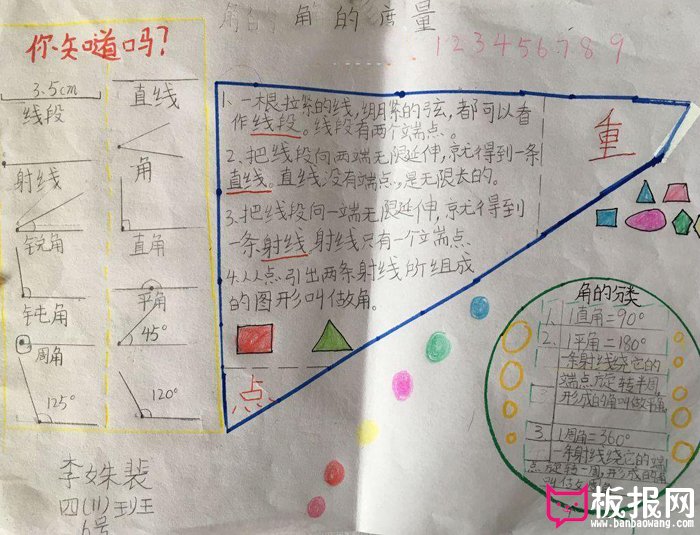 角的 角的度量
1 2 3 4 5 6 7 8 9
你知道吗?
3.5cm
线段
直线
射线
角
锐角
直角
钝角
平角
45°
周角
125°
120°
1、一根拉紧的线,绷紧的弦,都可以看
作线段。线段有两个端点。
2、把线段向两端无限延伸,就得到一条
直线。直线没有端点,是无限长的。
3、把线段向一端无限延伸,就得到
一条射线,射线只有一个端点
4、从一点引出两条射线所组成
的图形叫做角。
重
点
角的分类
1、1直角=90°
2、1平角=180°
一条射线绕它的
端点旋转半周
形成的角叫做平角
3、1周角=360°
一条射线绕它的端
点旋转一周,形成的角
叫做
李姝裴
四(11)班
6号
板报网
www.banbaowang.com